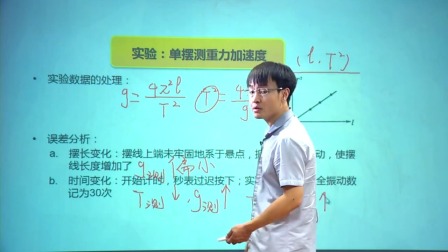 实验：单摆测重力加速度
(l, T²)
• 实验数据的处理：
g = 4π²l / T²
T² = 4
g
l
• 误差分析：
a. 摆长变化：摆线上端未牢固地系于悬点，动，使摆
线长度增加了
g测 偏小
b. 时间变化：开始计时，秒表过迟按下；实全振动数
记为30次
T测↓，g测↑
↑